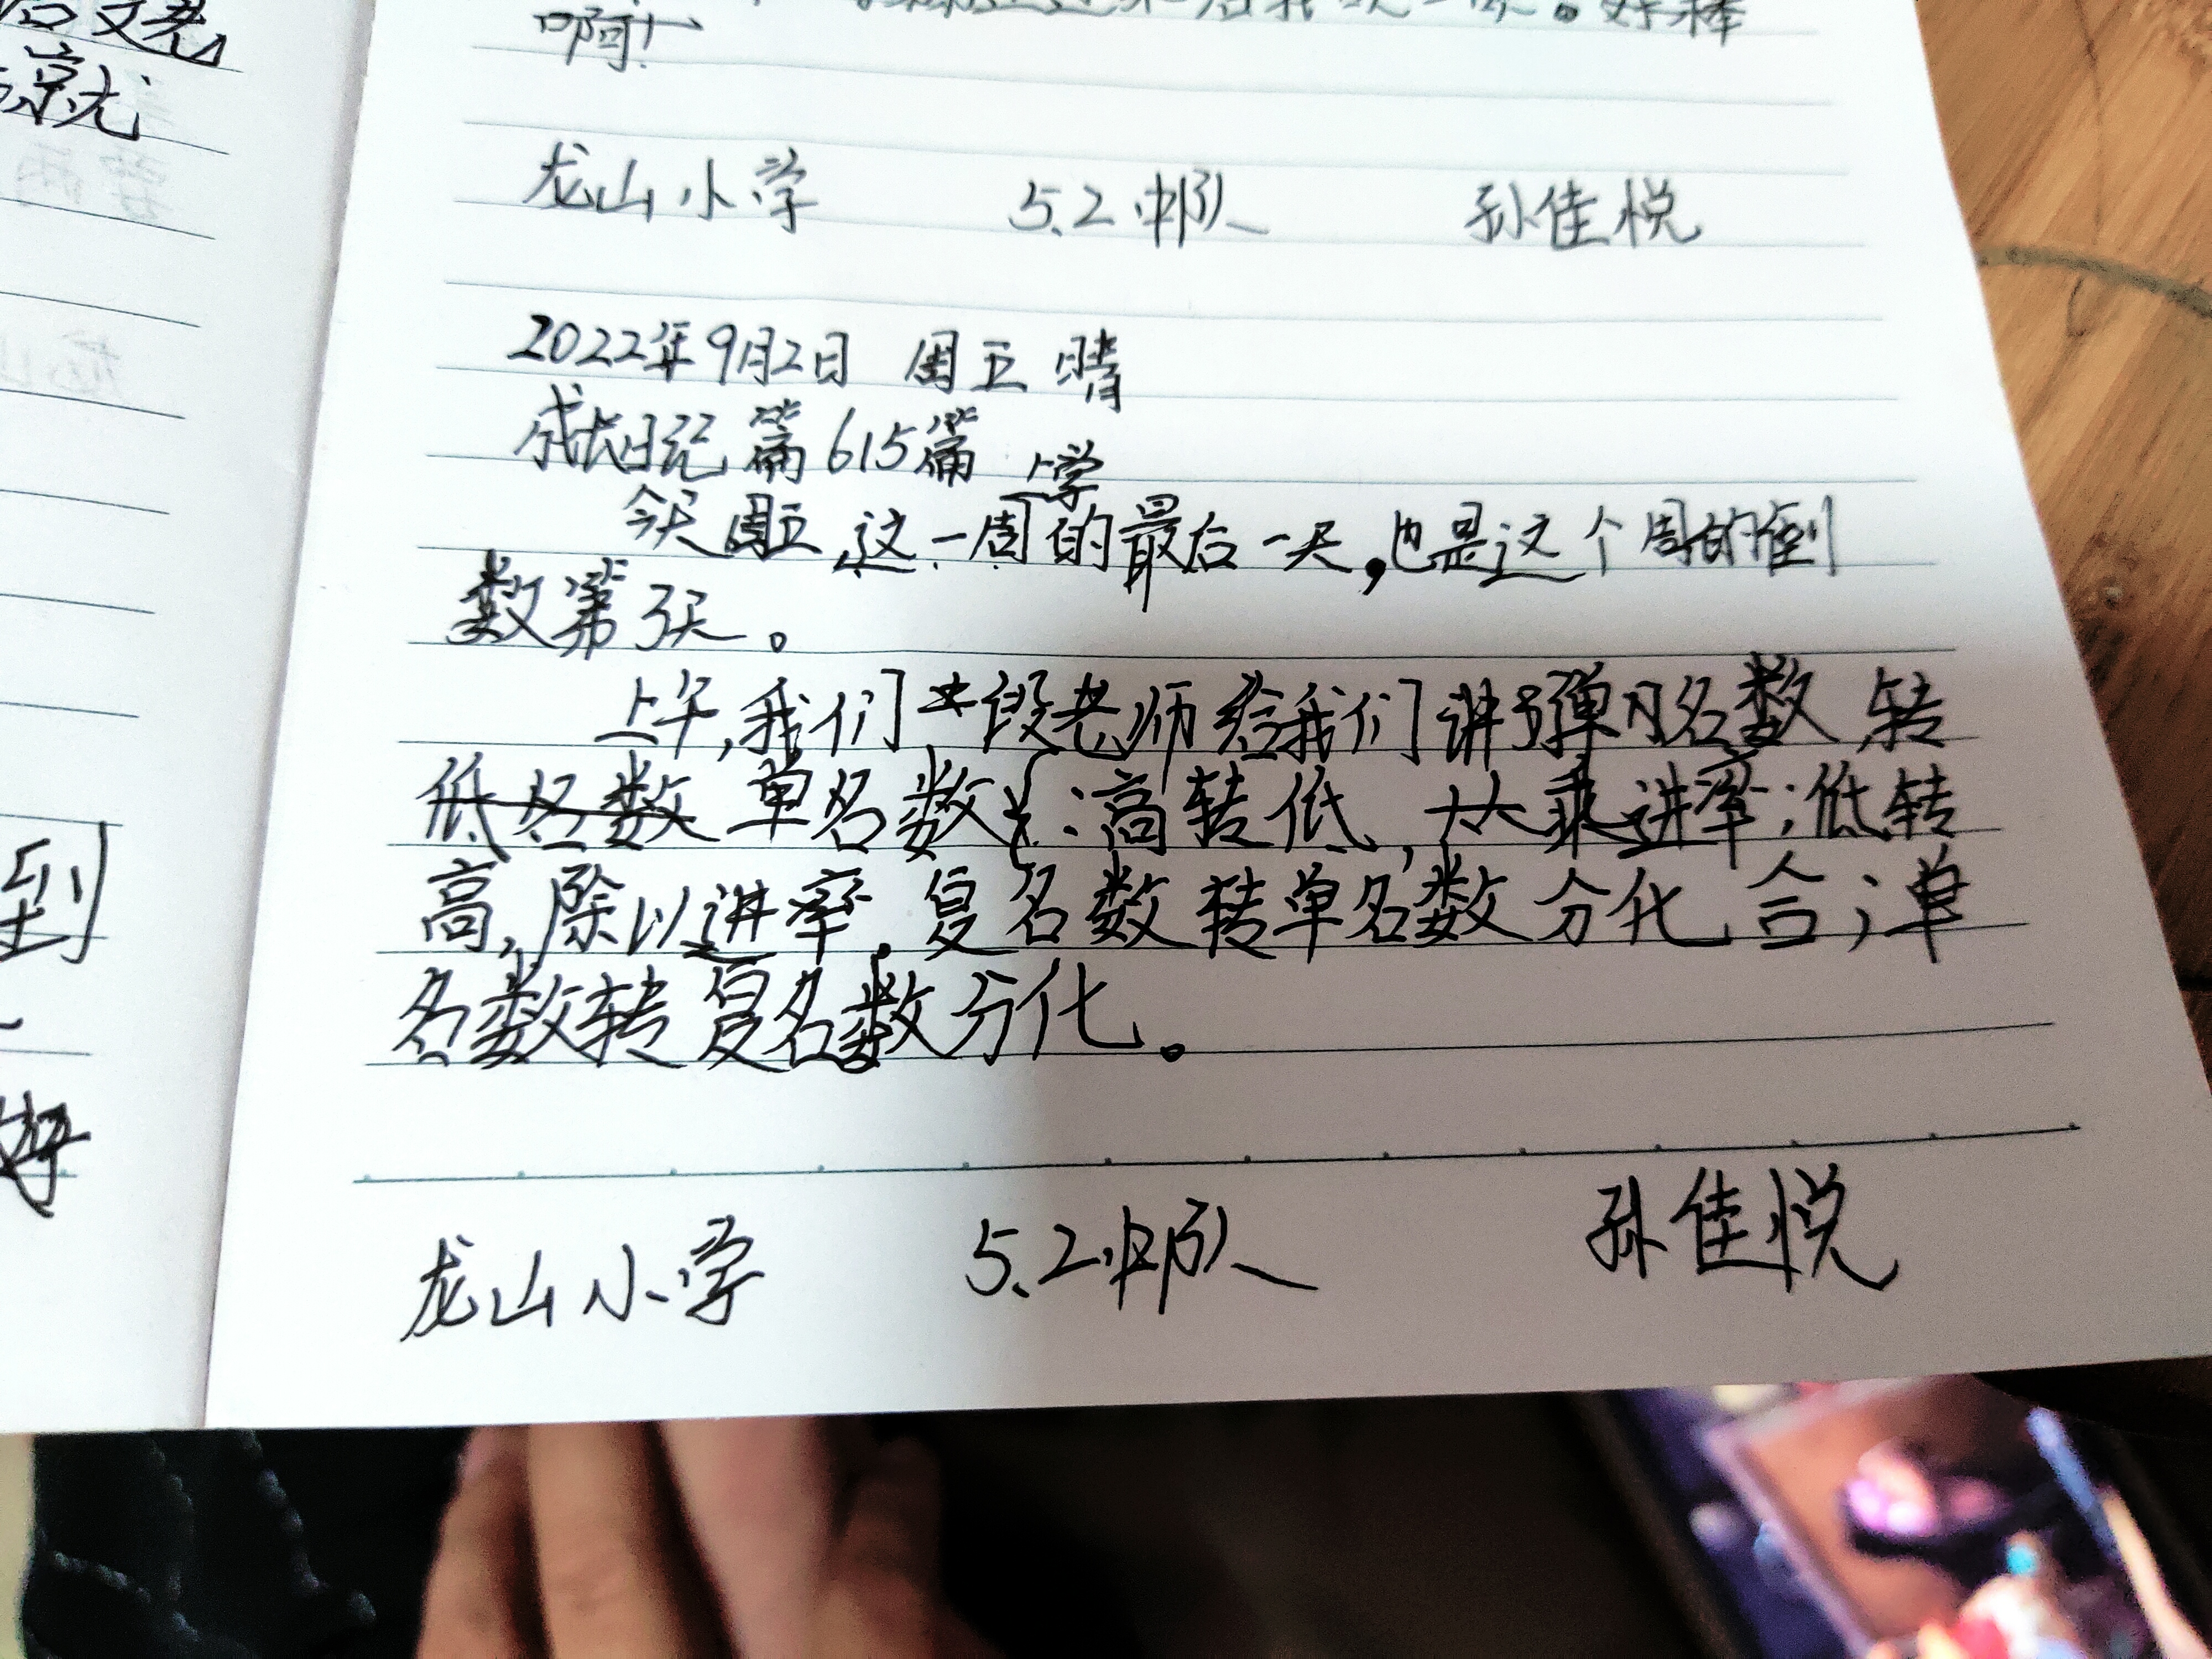 后文老
凉就
到
好
好棒
啊!
龙山小学 5.2中队 孙佳悦
2022年9月2日 周五 晴
成长日记 篇615篇
上学
今天周五,这一周的最后一天,也是这个周的倒
数第3天。
上午,我们段老师给我们讲了单名数 转
低名数 单名数:高转低,乘进率;低转
高,除以进率。复名数转单名数分化合;单
名数转复名数分化。
龙山小学 5.2中队 孙佳悦